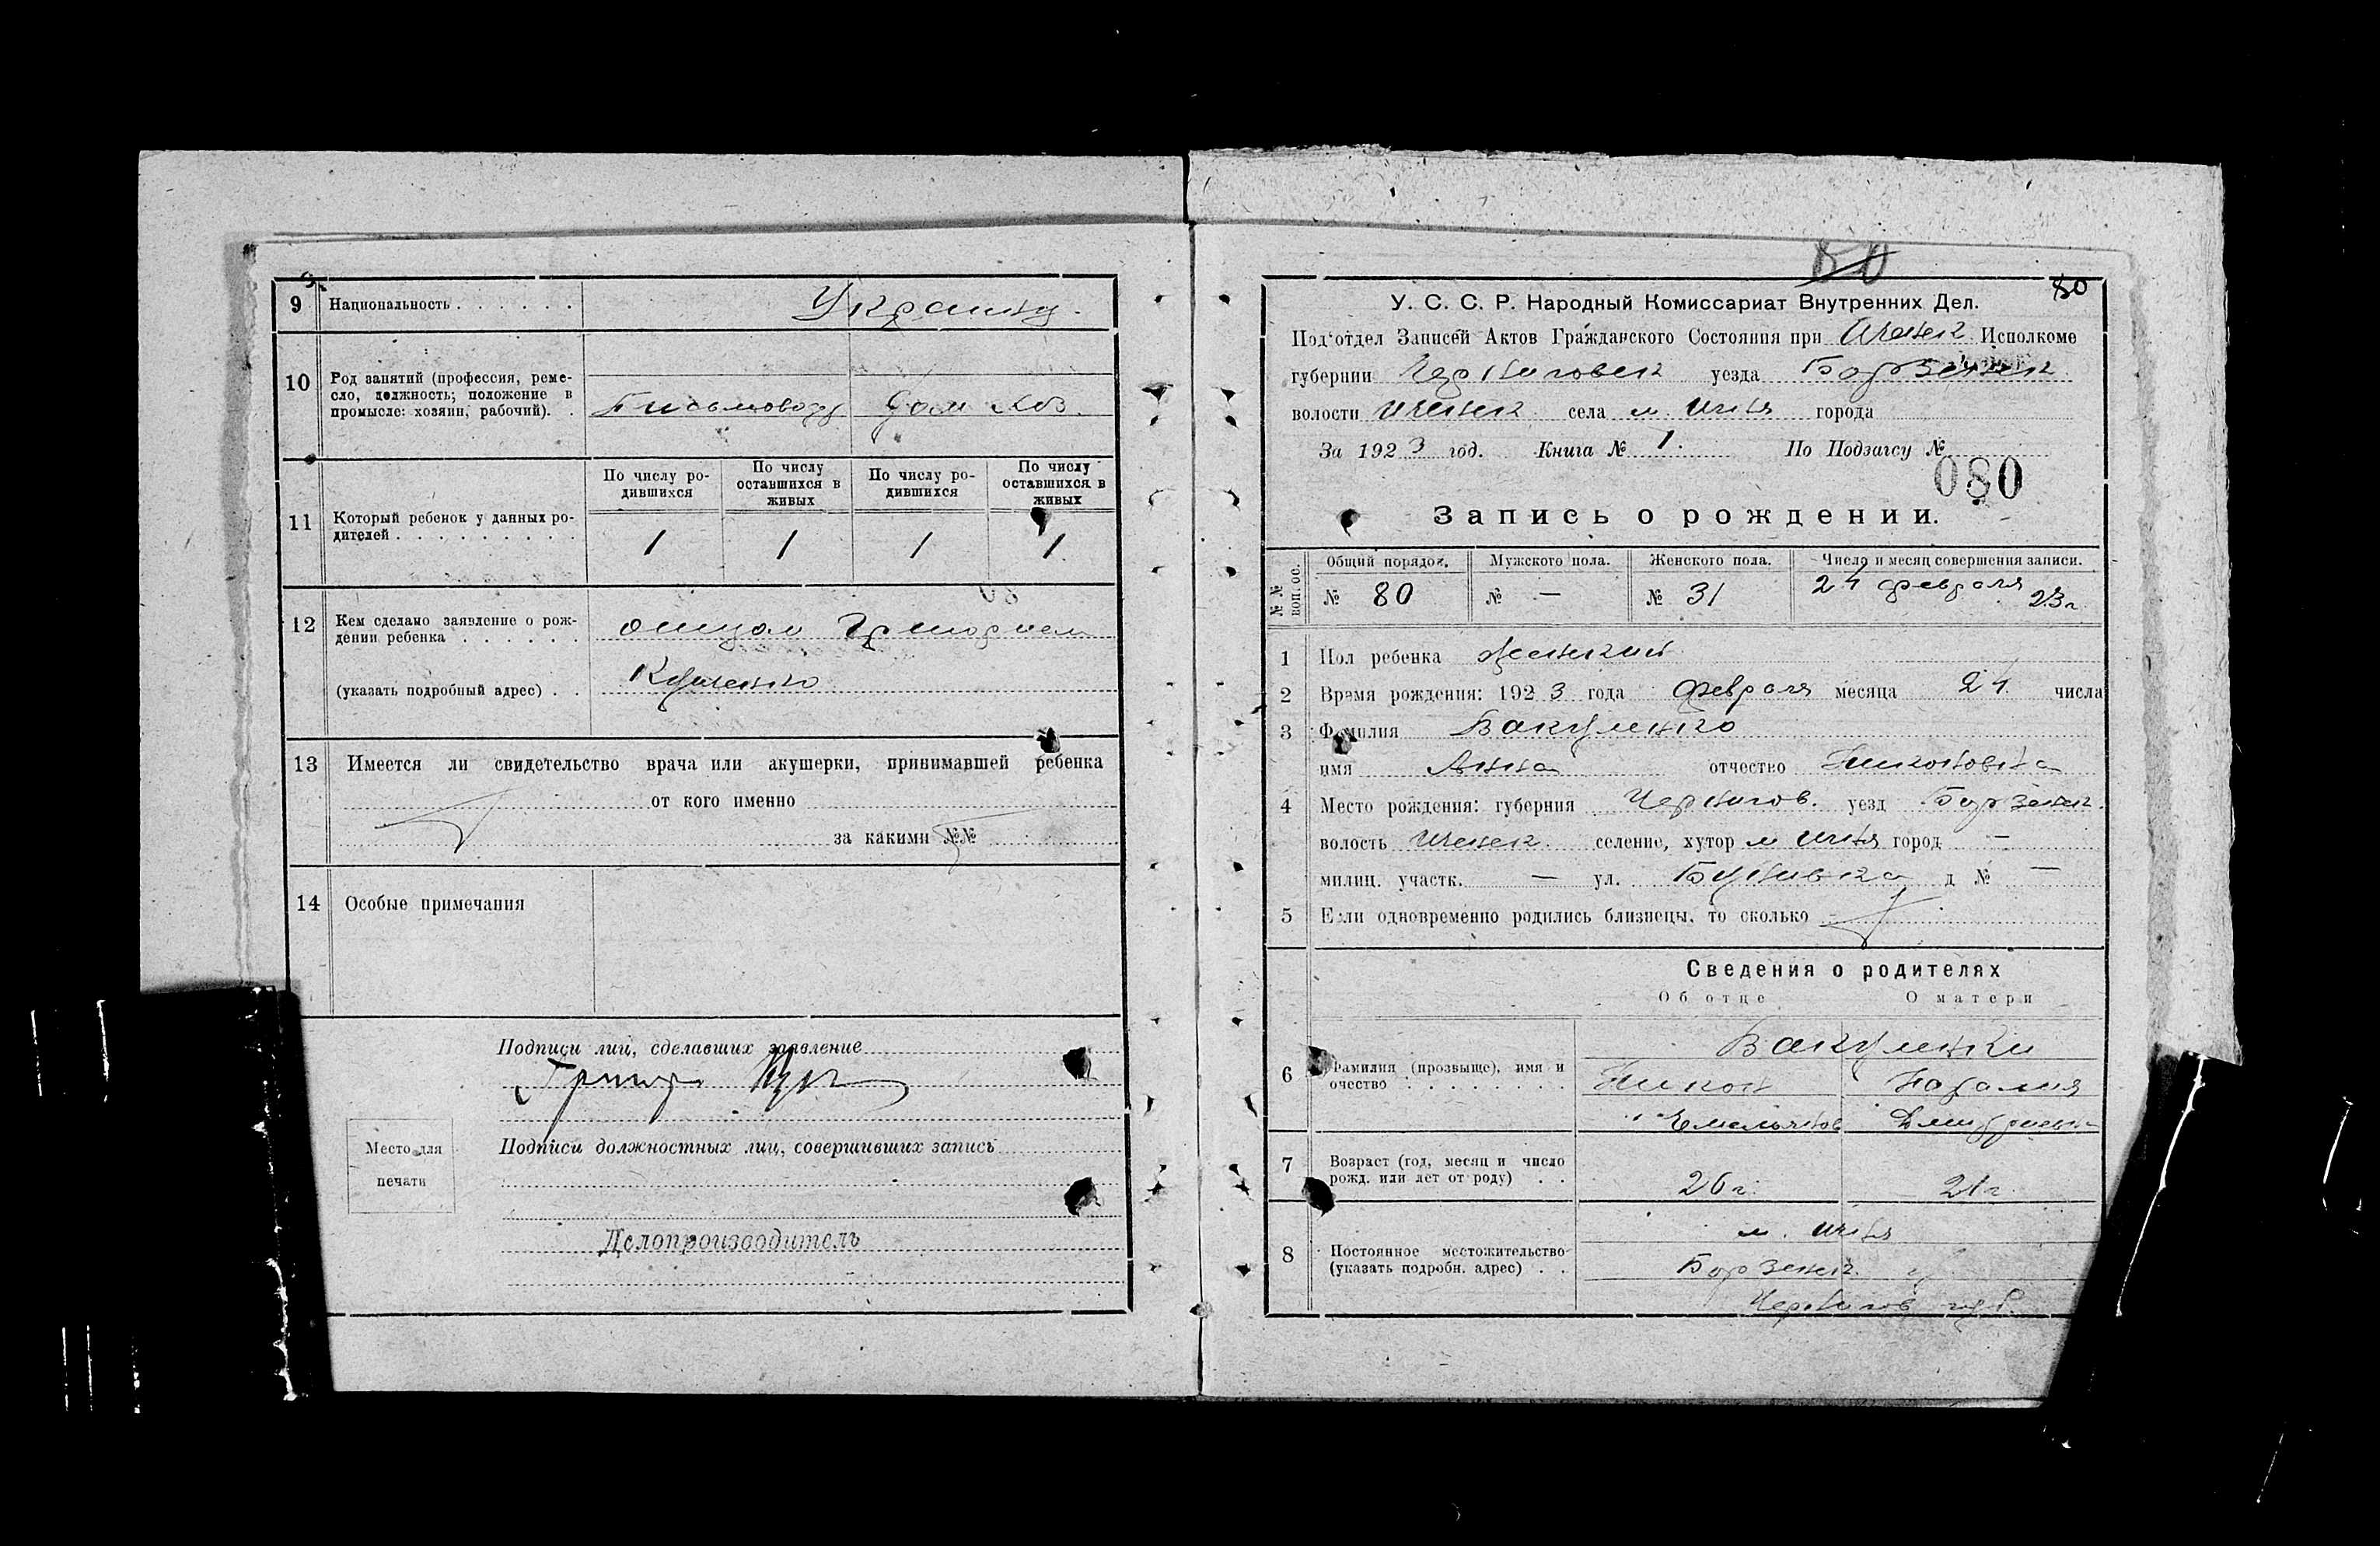 9 Национальность . . . . . . Украинцы.
10 Род занятий (профессия, реме-
сло, должность; положение в
промысле: хозяин, рабочий). . Письмовод дом хоз.
По числу ро-
дившихся
По числу
оставшихся в
живых
По числу ро-
дившихся
По числу
оставшихся в
живых
11 Который ребенок у данных ро-
дителей . . . . . . . . . 1 1 1 1
12 Кем сделано заявление о рож-
дении ребенка . . . . . . отцом Григорием
(указать подробный адрес) . .
13 Имеется ли свидетельство врача или акушерки, принимавшей ребенка
от кого именно
за какими №№
14 Особые примечания
Подписи лиц, сделавших заявление
Место для
печати
Подписи должностных лиц, совершивших запись
Делопроизводитель
80
80
У. С. С. Р. Народный Комиссариат Внутренних Дел.
Подотдел Записей Актов Гражданского Состояния при Ичнск Исполкоме
губернии Черниговск уезда Борзенск
волости Ичнск села м. Ичня города
За 1923 год. Книга № 1. По Подзагсу №
080
Запись о рождении.
№№ воп. ос. Общий порядок. Мужского пола. Женского пола. Число и месяц совершения записи.
№ 80 № — № 31 24 февраля 23 г.
1 Пол ребенка женский
2 Время рождения: 1923 года февраля месяца 21 числа
3 Фамилия Вакуленко
имя Анна отчество Никоновна
4 Место рождения: губерния Чернигов. уезд Борзенск.
волость Ичнск селение, хутор м Ичня город —
милиц. участк. — ул. Бутовка д № —
5 Если одновременно родились близнецы, то сколько
Сведения о родителях
Об отце О матери
6 Фамилия (прозвыще), имя и
очество . . . . . . . .
Вакуленки
Никон Наталия
Емельянов Дмитриевн
7 Возраст (год, месяц и число
рожд. или лет от роду) . . 26 г. 21 г.
8 Постоянное местожительство
(указать подробн. адрес) . .
м. Ичня
Борзенск. у
Чернигов губ.